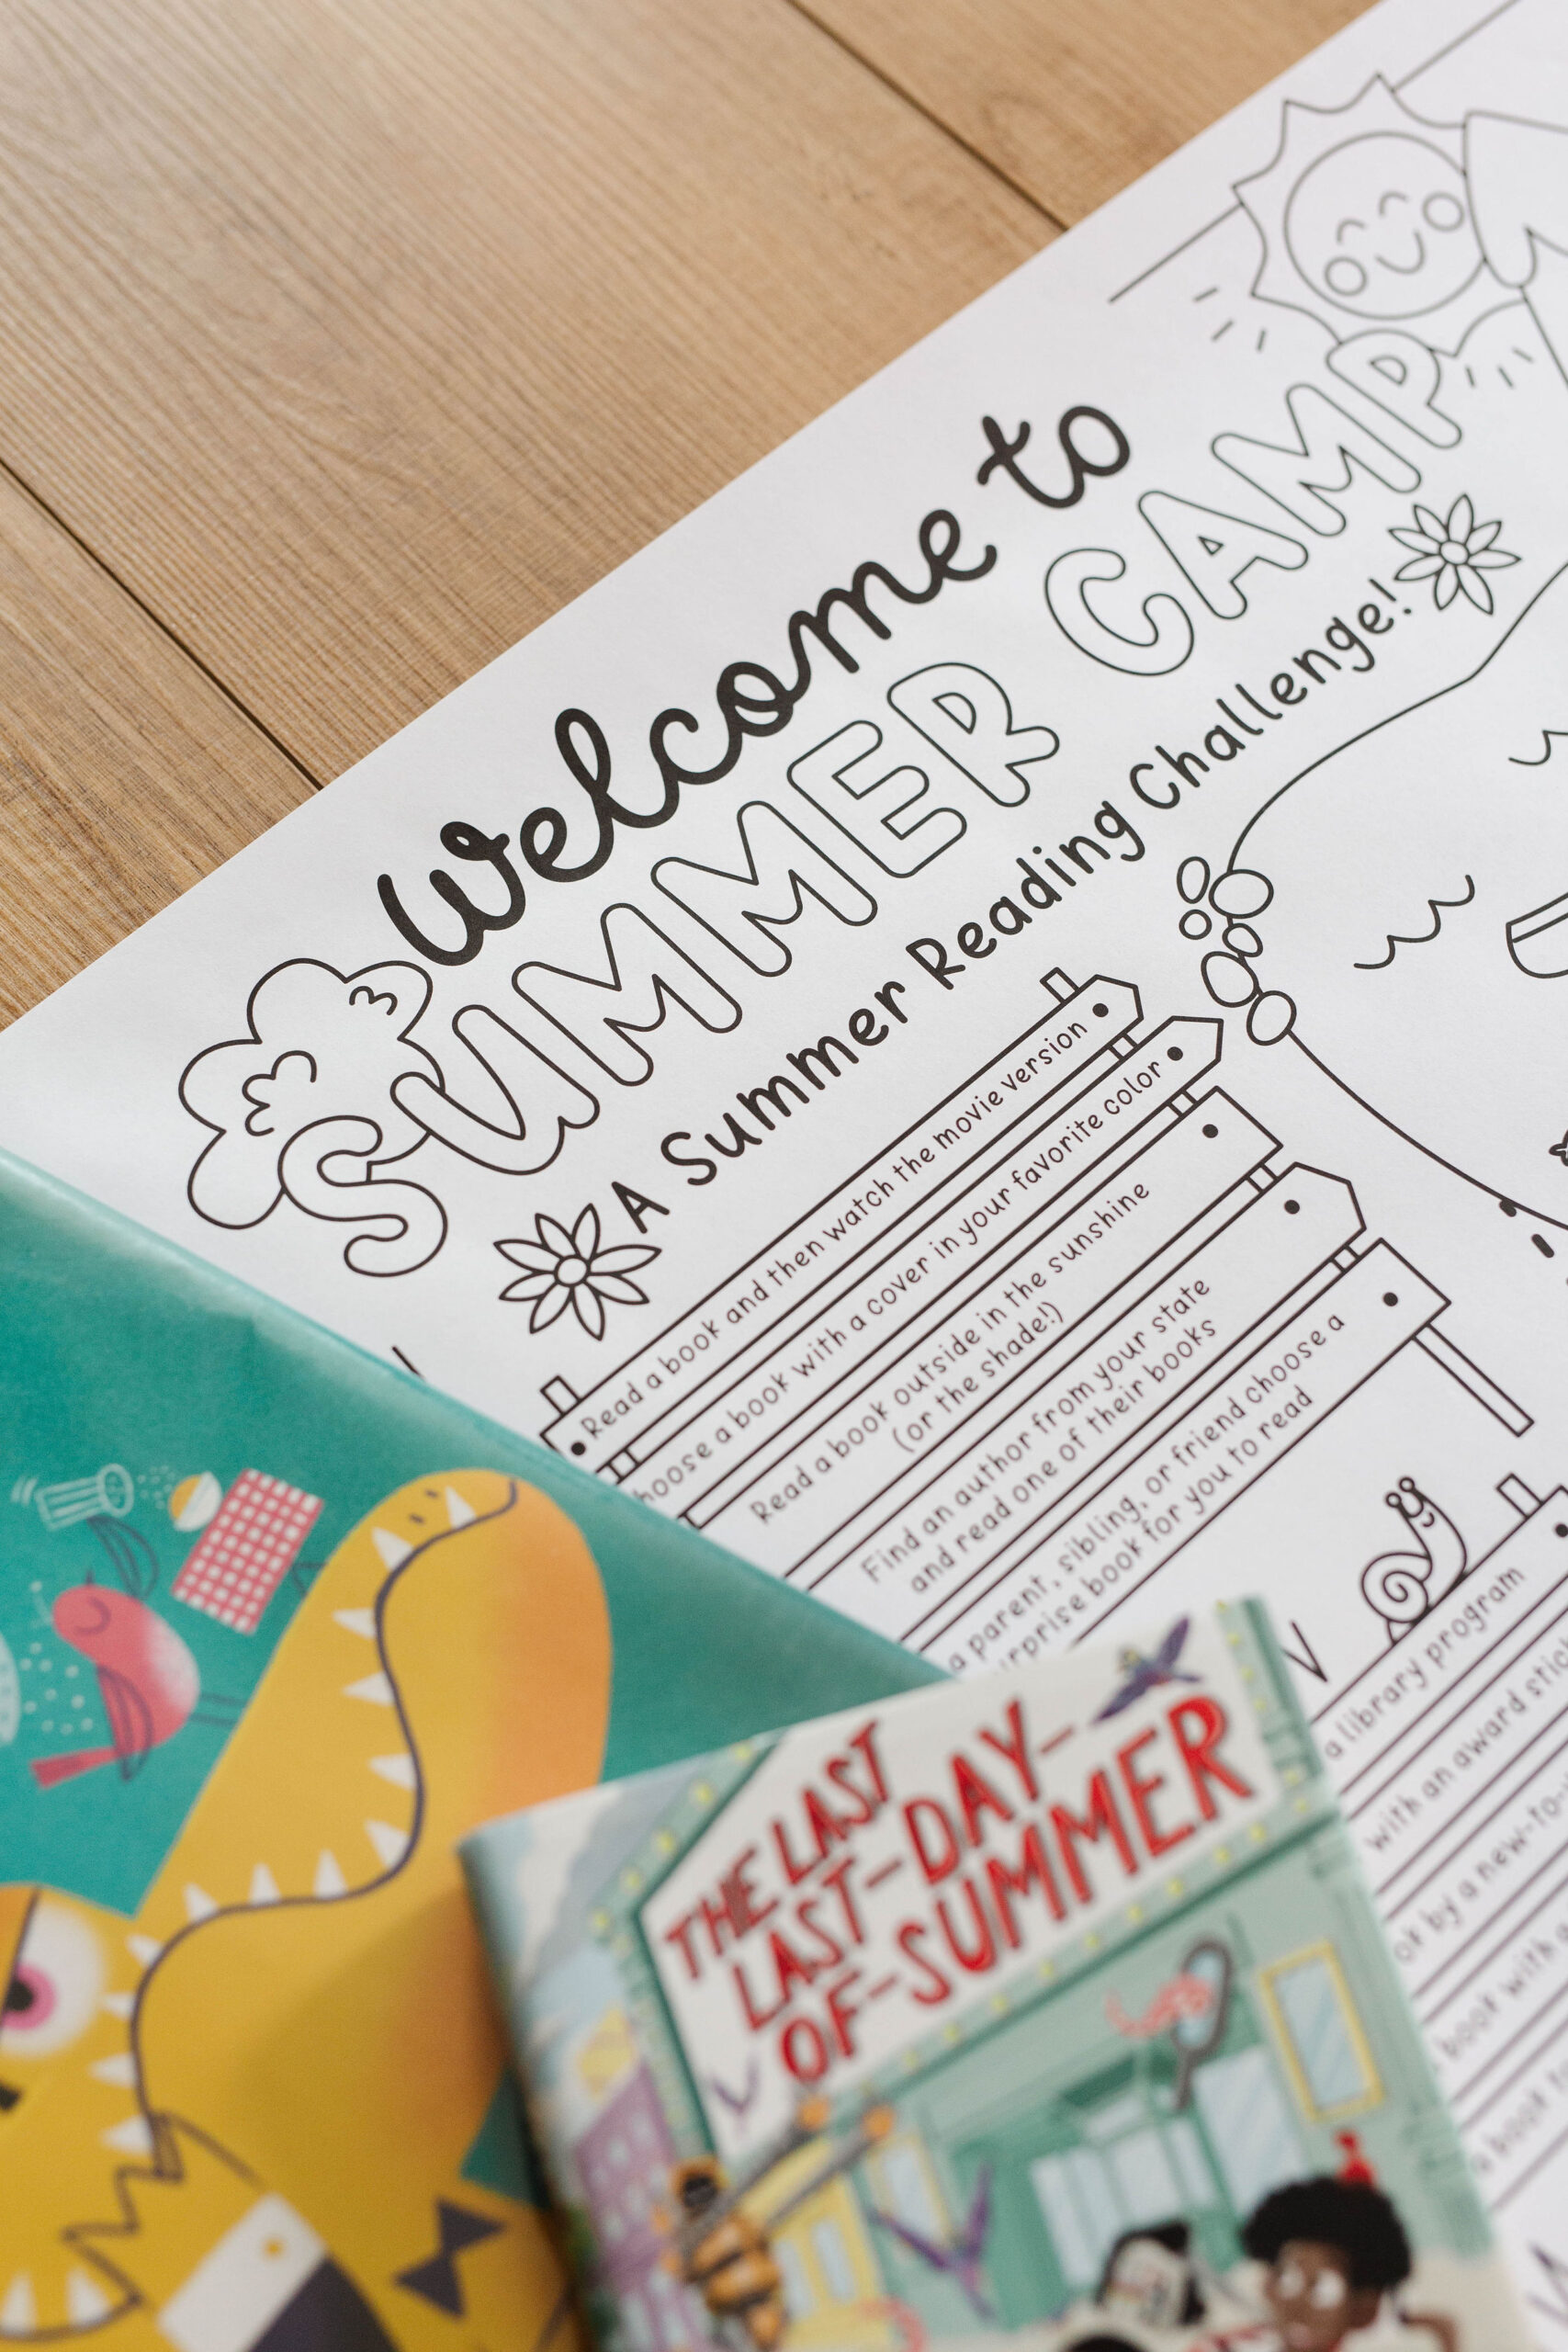 Welcome to
SUMMER CAMP
A Summer Reading Challenge!
Read a book and then watch the movie version
hoose a book with a cover in your favorite color
Read a book outside in the sunshine
(or the shade!)
Find an author from your state
and read one of their books
a parent, sibling, or friend choose a
urprise book for you to read
a library program
with an award stic
ok by a new-to-
book with a
a book
THE LAST
LAST-DAY-
OF-SUMMER